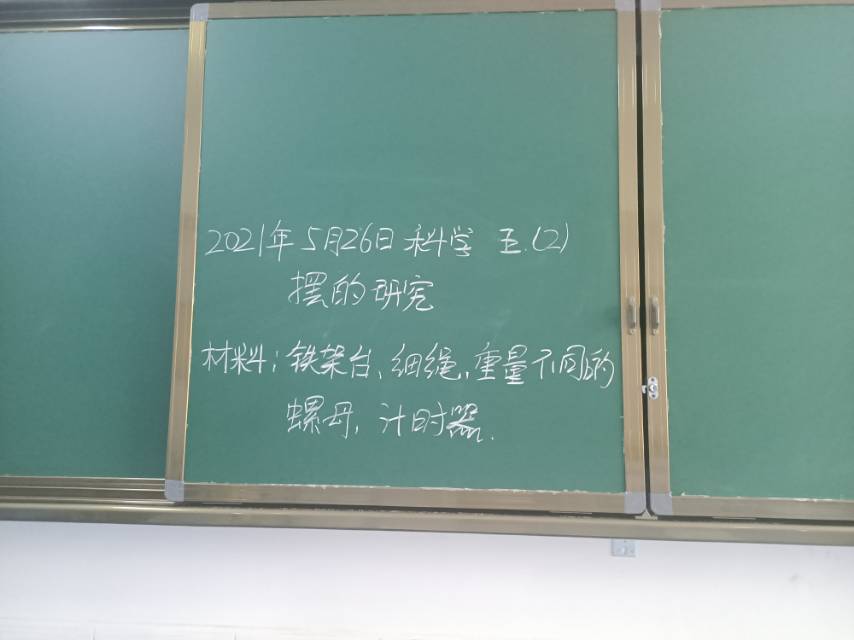 2021年5月26日 科学 五.(2)
摆的研究
材料:铁架台、细绳,重量不同的
螺母,计时器.